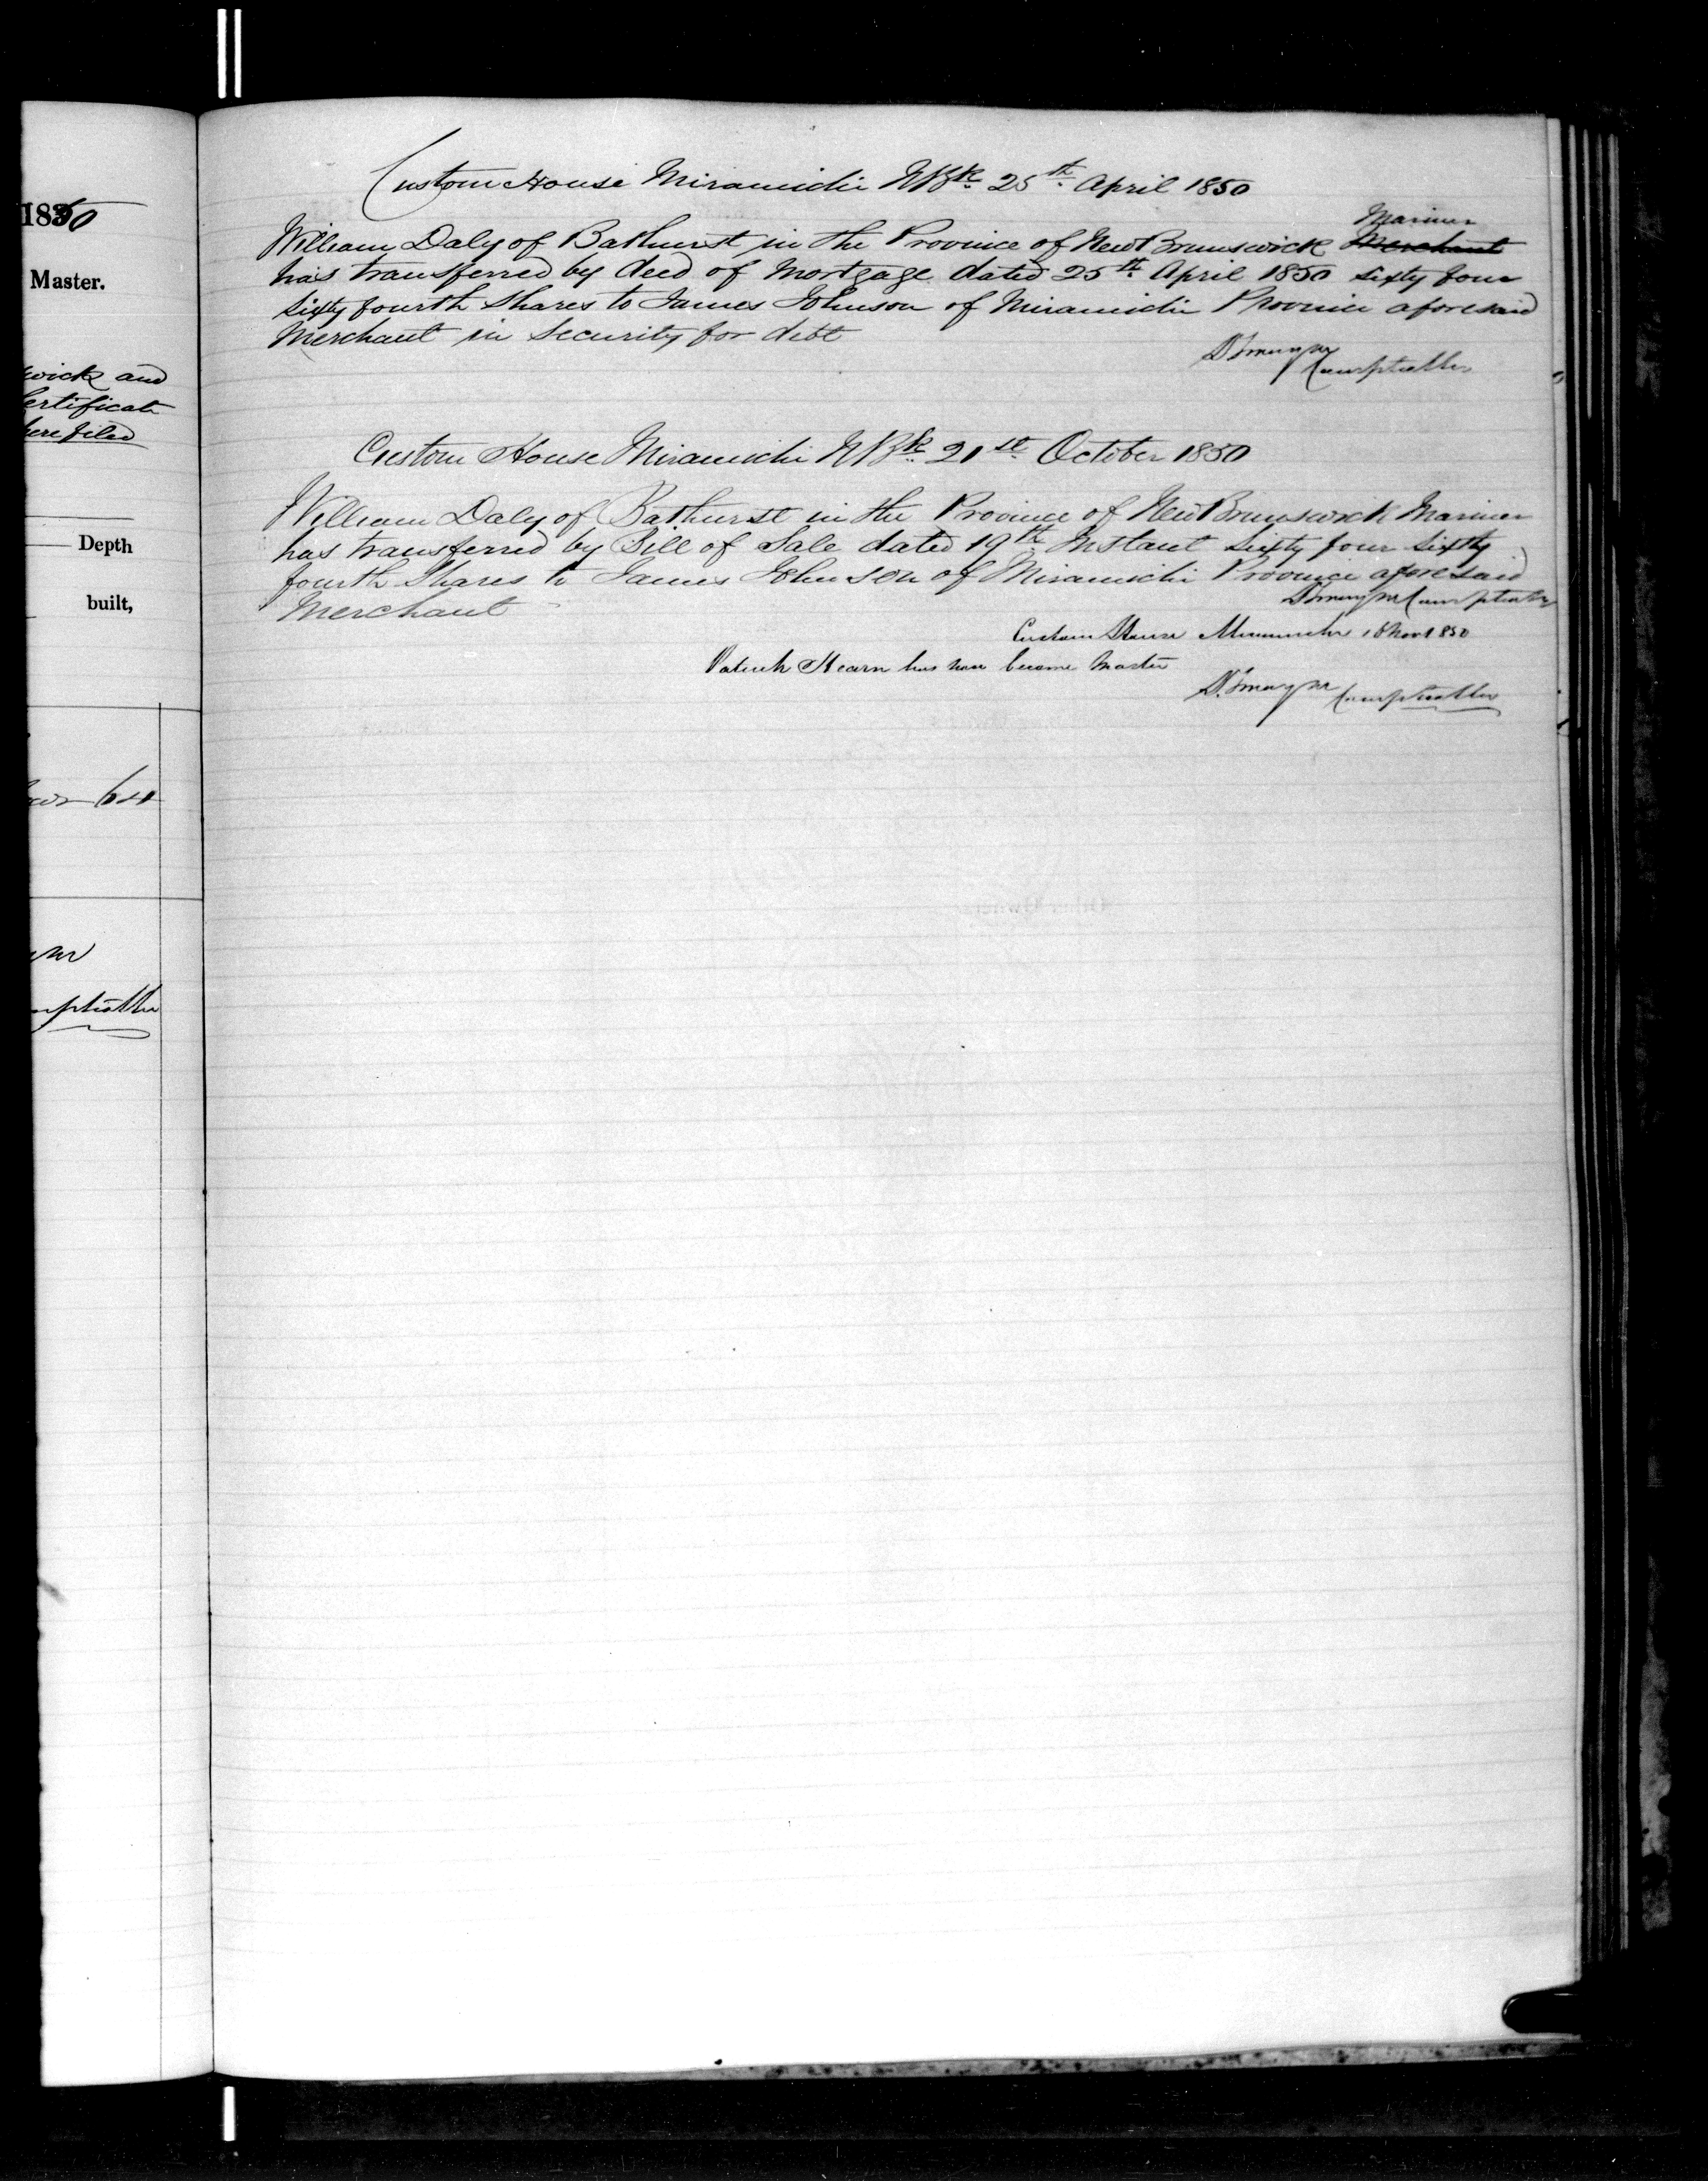 1850
Master.
wick and
Certificate
here filed
Depth
built,
640
Custom House Miramichi NBk 25th April 1850
Mariner
William Daly of Bathurst in the Province of New Brunswick Merchant
has transferred by deed of Mortgage dated 25th April 1850 sixty four
sixty fourth shares to James Johnson of Miramichi Province aforesaid
Merchant in Security for debt
Comptroller
Custom House Miramichi NBk 21st October 1850
William Daly of Bathurst in the Province of New Brunswick Mariner
has transferred by Bill of Sale dated 19th Instant Sixty four Sixty
fourth Shares to James Johnson of Miramichi Province aforesaid
Merchant
Comptroller
Custom House Miramichi Nov 1850
Patrick Hearn has now become Master
Comptroller